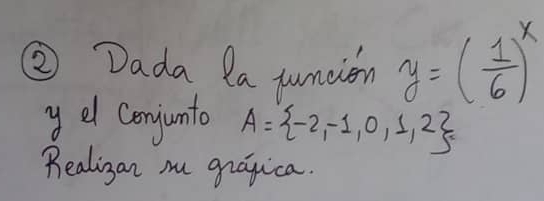 ② Dada la función y = (1/6)^x
y el Conjunto A = {-2, -1, 0, 1, 2}
Realizar su gráfica.